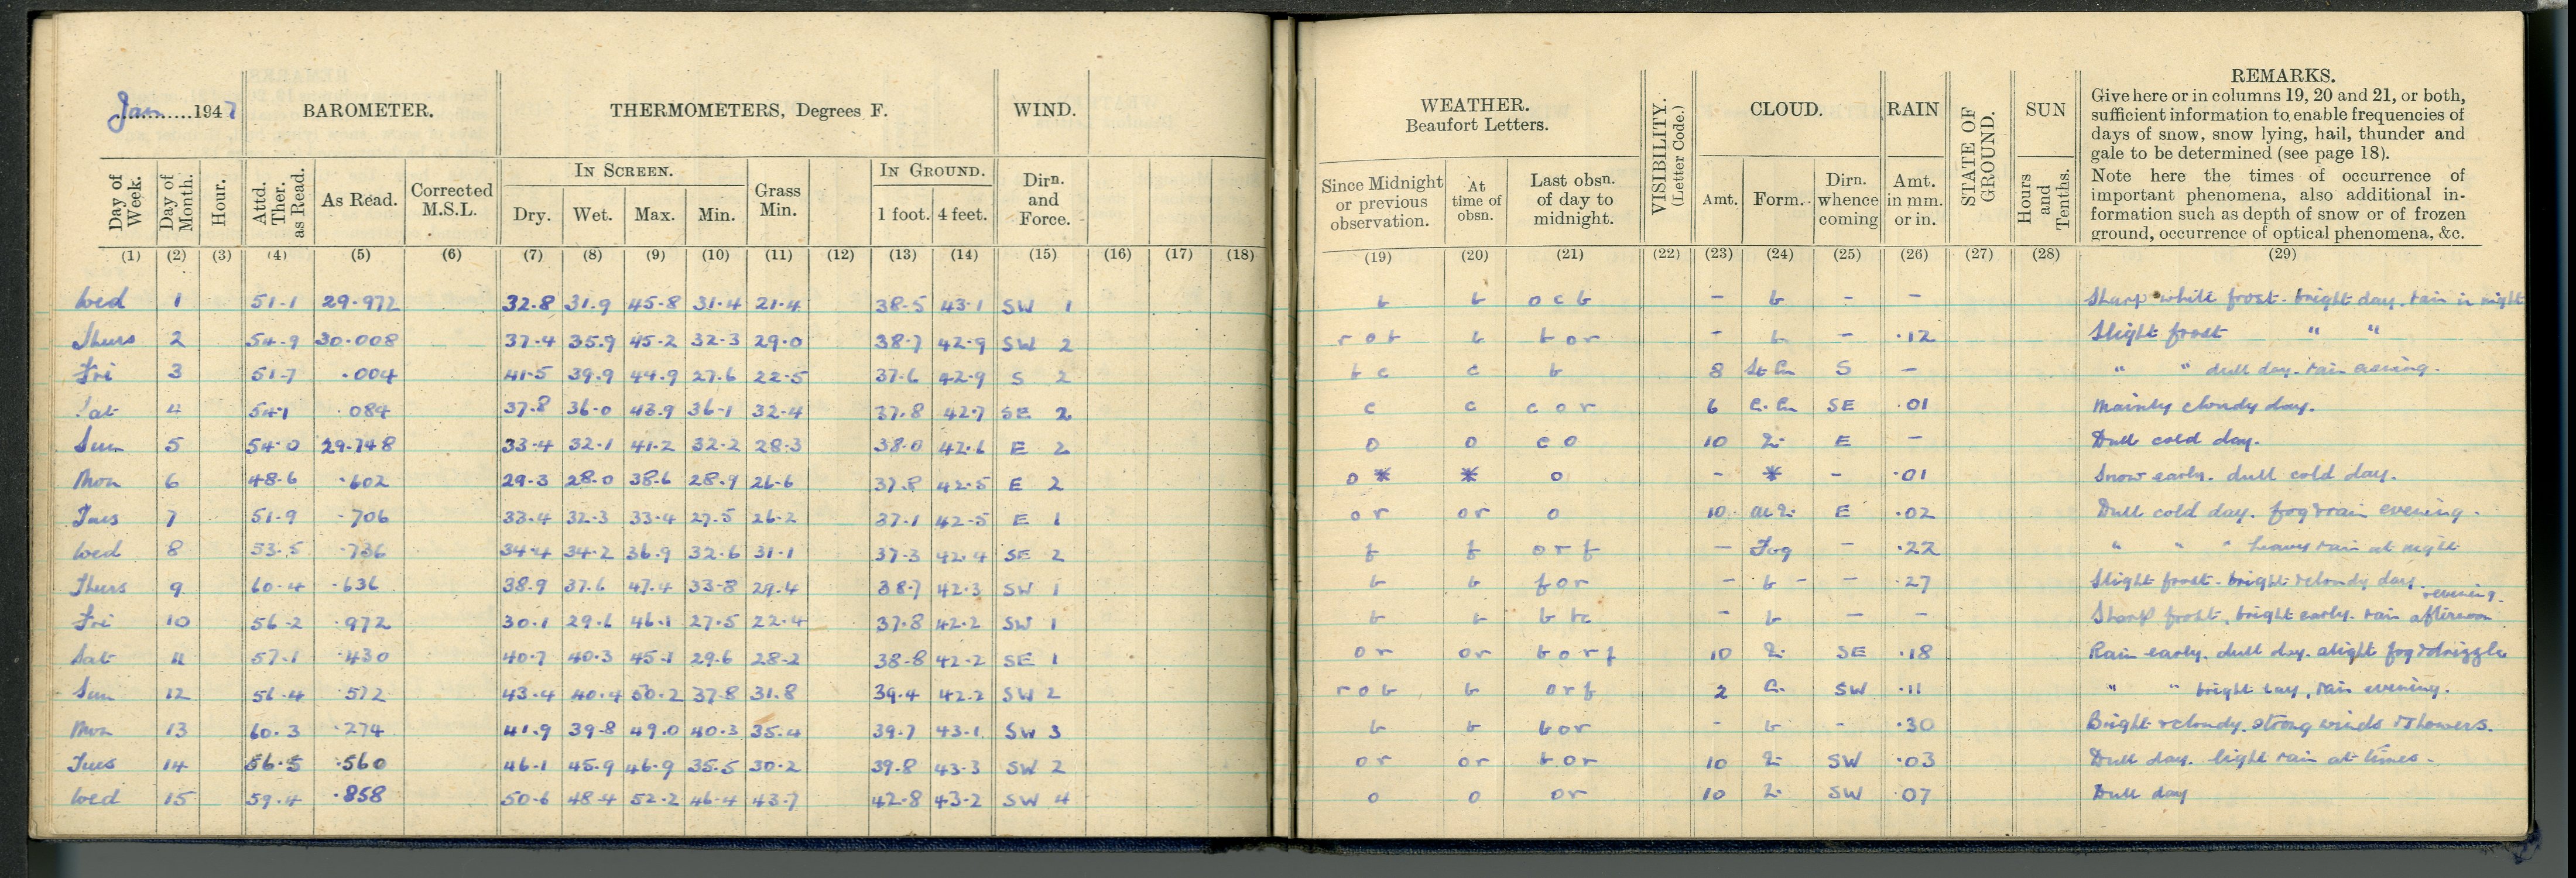 Jan 1947 BAROMETER. THERMOMETERS, Degrees F. WIND.
Day of Week. Day of Month. Hour. Attd. Ther. as Read. As Read. Corrected M.S.L. IN SCREEN. Dry. Wet. Max. Min. Grass Min. IN GROUND. 1 foot. 4 feet. Dirn. and Force.
(1) (2) (3) (4) (5) (6) (7) (8) (9) (10) (11) (12) (13) (14) (15) (16) (17) (18)
Wed 1 51.1 29.972 32.8 31.9 45.8 31.4 21.4 38.5 43.1 SW 1
Thurs 2 54.9 30.008 37.4 35.9 45.2 32.3 29.0 38.7 42.9 SW 2
Fri 3 51.7 .004 41.5 39.9 44.9 27.6 22.5 37.6 42.9 S 2
Sat 4 54.1 .084 37.8 36.0 43.9 36.1 32.4 37.8 42.7 SE 2
Sun 5 54.0 29.748 33.4 32.1 41.2 32.2 28.3 38.0 42.6 E 2
Mon 6 48.6 .602 29.3 28.0 38.6 28.9 26.6 37.8 42.5 E 2
Tues 7 51.9 .706 33.4 32.3 33.4 27.5 26.2 37.1 42.5 E 1
Wed 8 53.5 .736 34.4 34.2 36.9 32.6 31.1 37.3 42.4 SE 2
Thurs 9 60.4 .636 38.9 37.6 47.4 33.8 29.4 38.7 42.3 SW 1
Fri 10 56.2 .972 30.1 29.6 46.1 27.5 22.4 37.8 42.2 SW 1
Sat 11 57.1 .430 40.7 40.3 45.1 29.6 28.2 38.8 42.2 SE 1
Sun 12 56.4 .572 43.4 40.4 50.2 37.8 31.8 39.4 42.2 SW 2
Mon 13 60.3 .274 41.9 39.8 49.0 40.3 35.4 39.7 43.1 SW 3
Tues 14 56.5 .560 46.1 45.9 46.9 35.5 30.2 39.8 43.3 SW 2
Wed 15 59.4 .858 50.6 48.4 52.2 46.4 43.7 42.8 43.2 SW 4
WEATHER. Beaufort Letters. VISIBILITY. (Letter Code.) CLOUD. RAIN STATE OF GROUND. SUN REMARKS.
Give here or in columns 19, 20 and 21, or both,
sufficient information to enable frequencies of
days of snow, snow lying, hail, thunder and
gale to be determined (see page 18).
Note here the times of occurrence of
important phenomena, also additional in-
formation such as depth of snow or of frozen
ground, occurrence of optical phenomena, &c.
Since Midnight or previous observation. At time of obsn. Last obsn. of day to midnight. Amt. Form. Dirn. whence coming Amt. in mm. or in. Hours and Tenths.
(19) (20) (21) (22) (23) (24) (25) (26) (27) (28) (29)
b b o c b - b - - Sharp white frost. bright day. rain in night
r o b b b o r - b - .12 Slight frost " "
b c c b 8 St Cu S - " " dull day. rain evening.
c c c o r 6 C. Cu SE .01 Mainly cloudy day.
o o c o 10 E - Dull cold day.
o * * o - * - .01 Snow early. dull cold day.
o r o r o 10 E .02 Dull cold day. fog & rain evening.
f f o r f - Fog - .22 " " " heavy rain at night
b b f o r - b - - .27 Slight frost. bright & cloudy day.
b b b bc - b - - Sharp frost, bright early. rain afternoon & evening.
o r o r b o r f 10 SE .18 Rain early. dull day. slight fog & drizzle
r o b b o r f 2 SW .11 " " bright day, rain evening.
b b b o r - b - .30 Bright & cloudy. strong winds & showers.
o r o r b o r 10 SW .03 Dull day. light rain at times.
o o o r 10 SW .07 Dull day